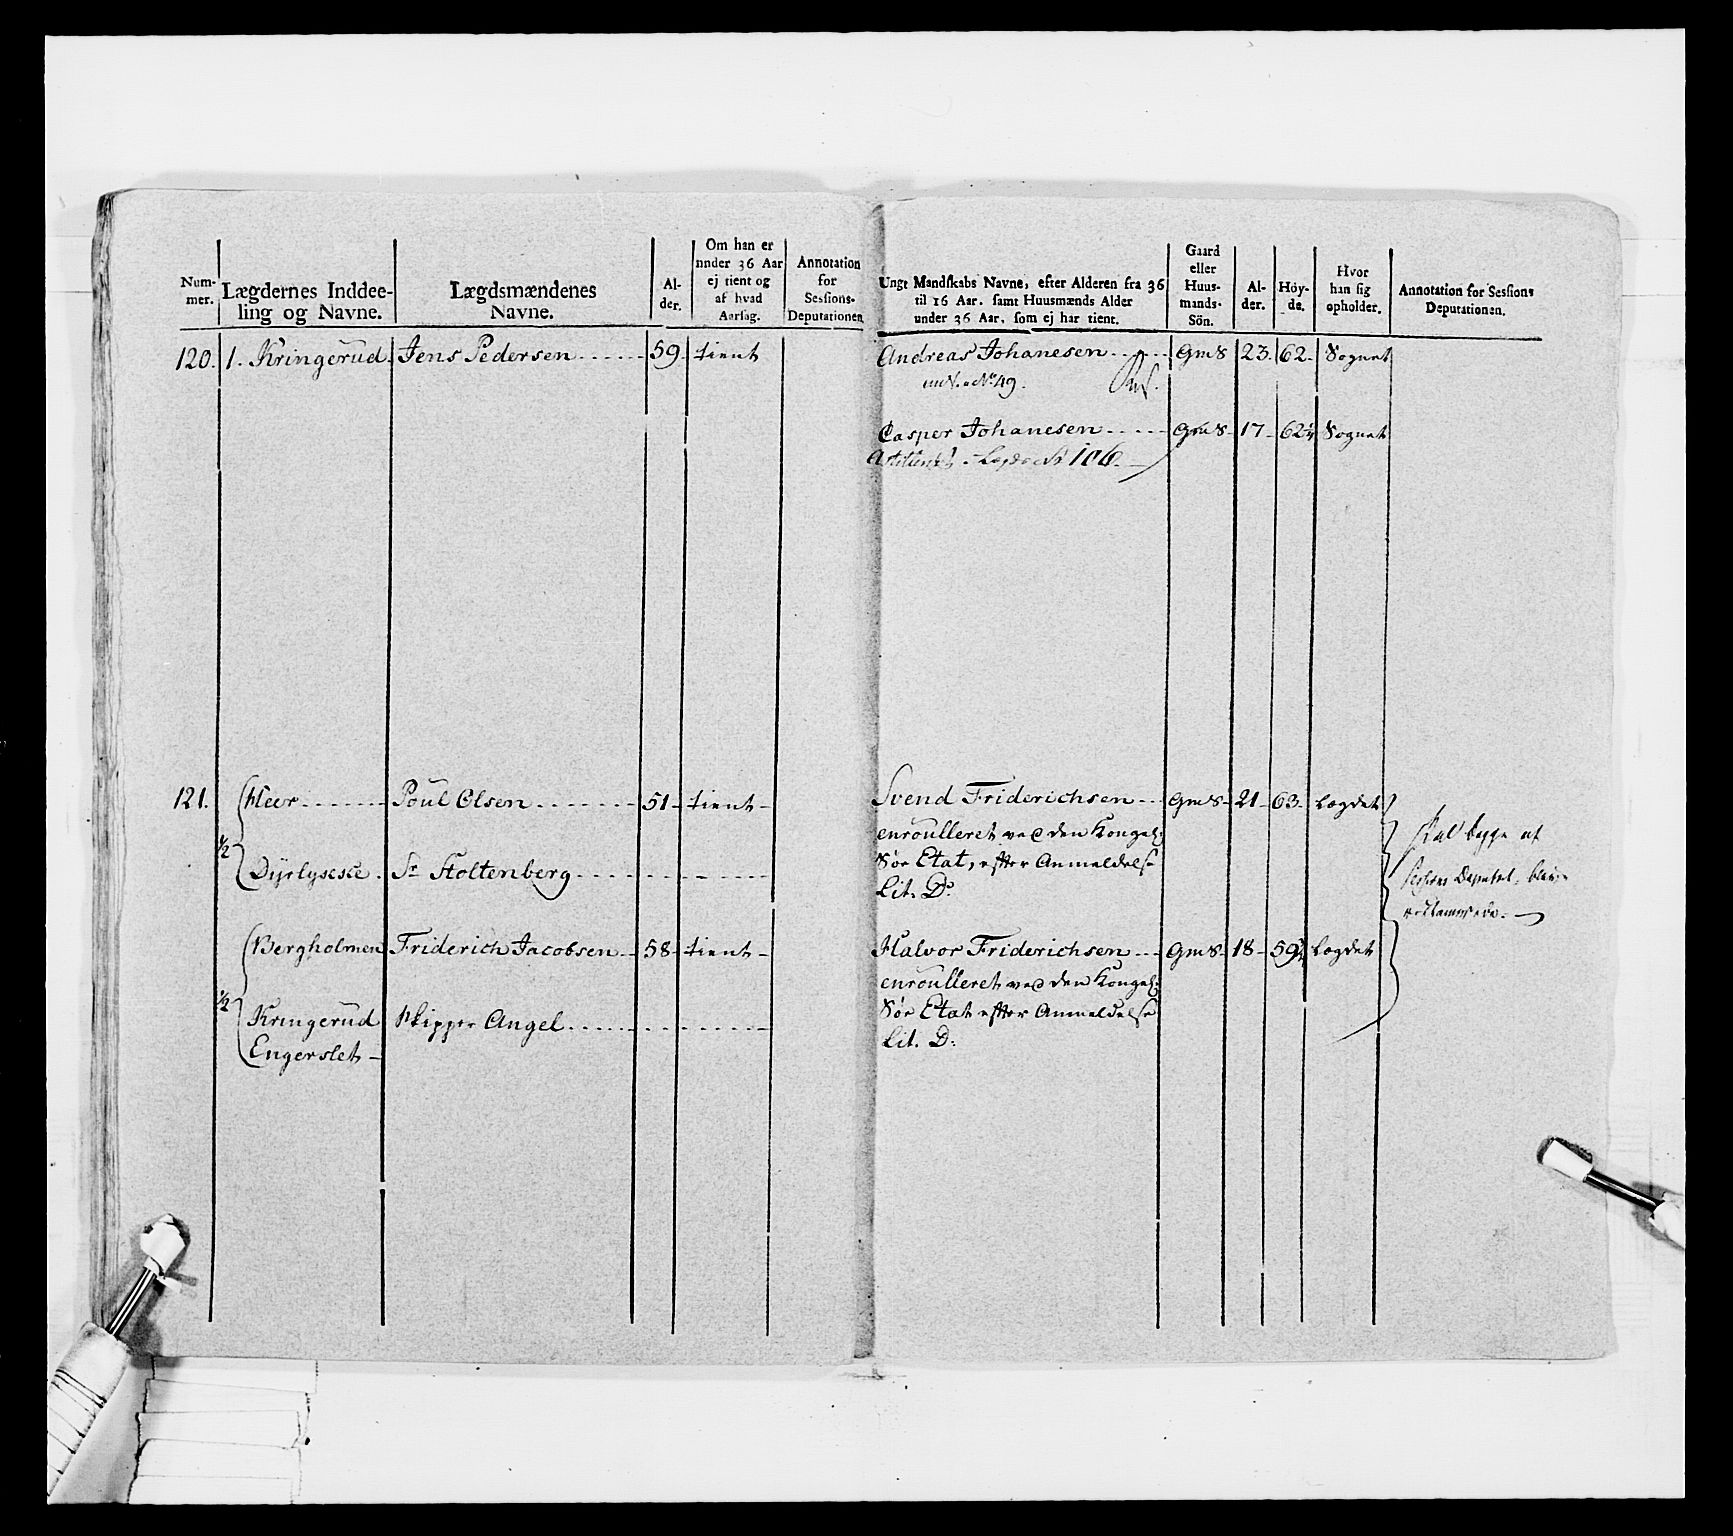 Num-
mer.
Lægdernes Inddee-
ling og Navne.
Lægdsmændenes
Navne.
Al-
der.
Om han er
under 36 Aar
ej tient og
af hvad
Aarsag.
Annotation
for
Sessions-
Deputationen
Ungt Mandskabs Navne, efter Alderen fra 36
til 16 Aar, samt Huusmænds Alder
under 36 Aar, som ej har tient.
Gaard
eller
Huus-
mands-
Sön.
Al-
der.
Höy-
de.
Hvor
han sig
opholder.
Annotation for Sessions
Deputationen.
120. 1. Kringerud. Jens Pedersen 59. tient Andreas Johanesen Gm S 23. 62. Sognet
No 49.
Casper Johanesen Gm S 17 62 Sognet
No 106.
121. Heer Poul Olsen 51 tient Svend Friderichsen Gm S 21 63 Lægdet
enroulleret ved den Kongel:
1/2
Söe Etat, efter Anmeldelse
Dyrlyscke Sr Stoltenberg
Lit. D.
Bergholmen Friderich Jacobsen 58 tient Halvor Friderichsen Gm S 18 59 Lægdet
enroulleret ved den Kongel:
1/2
Kringerud Skipper Angel Söe Etat efter Anmeldelse
Engerslet Lit. D: